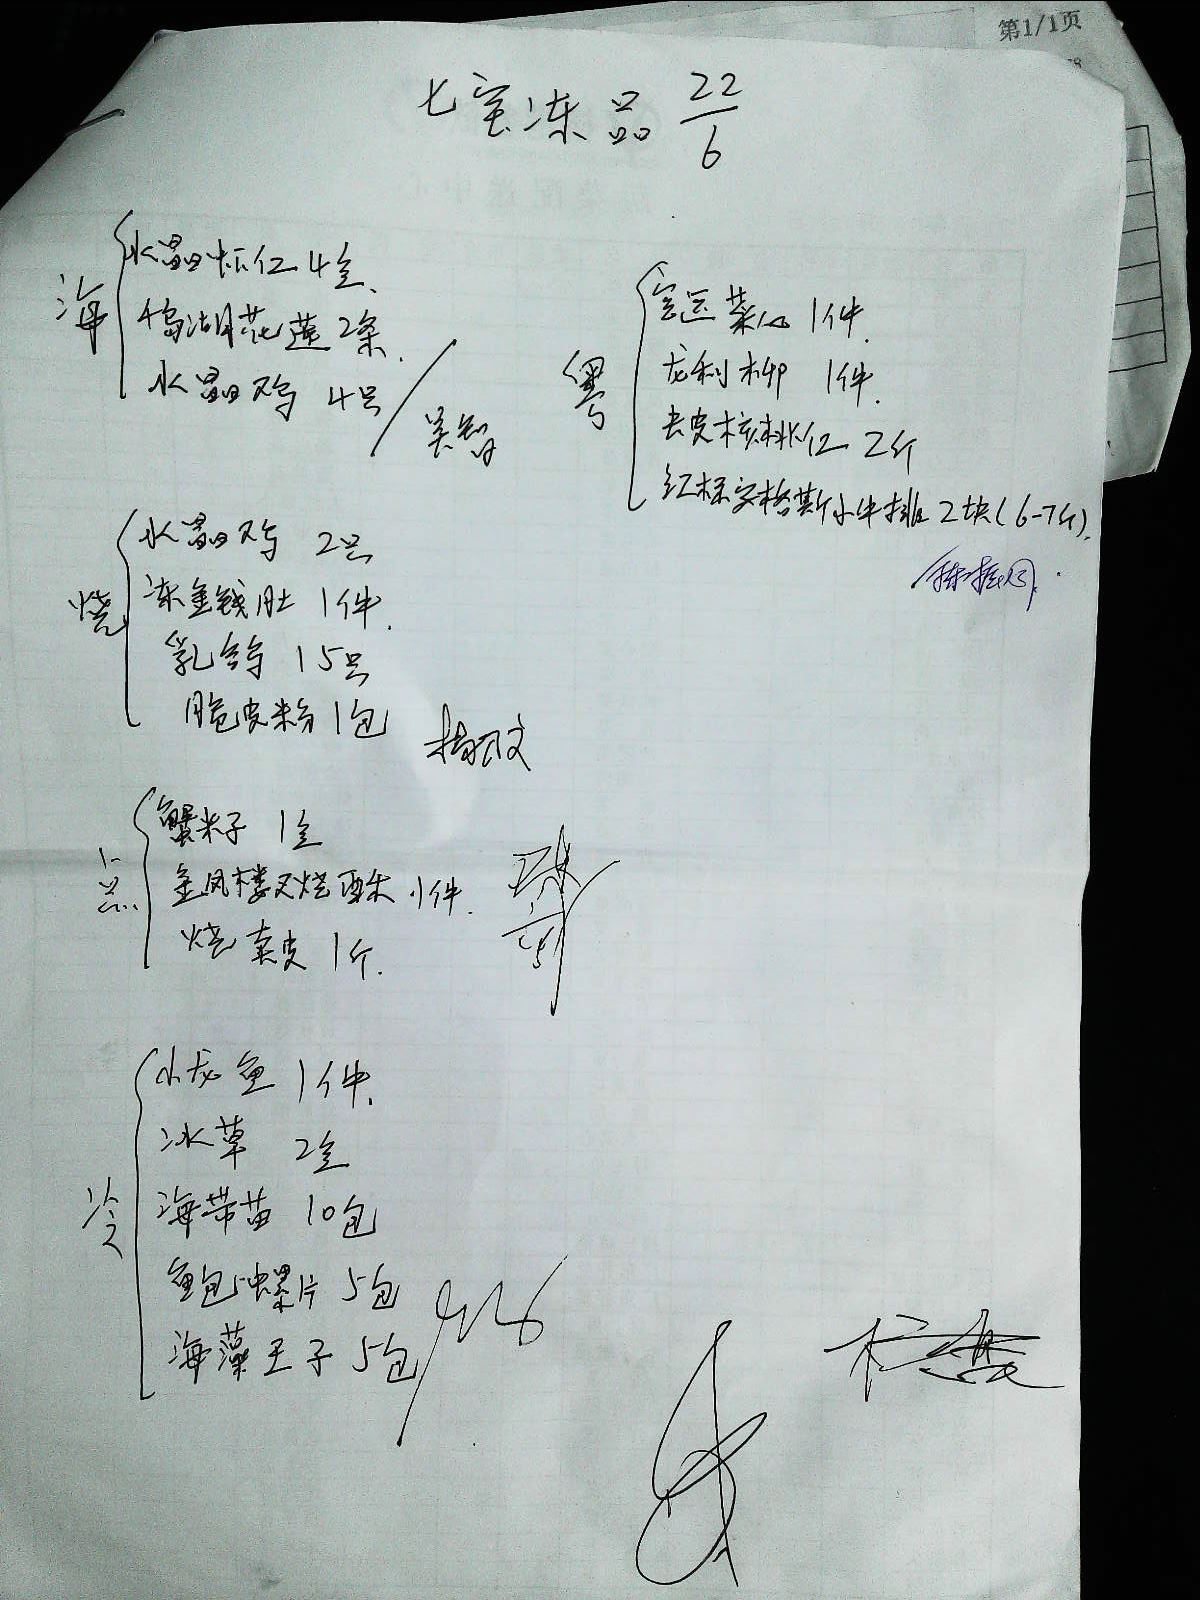 第1/1页
七宝冻品 22/6
海
水晶虾仁 4盒.
千岛湖花莲 2条.
水晶鸡 4只
吴智
粤
空运菜心 1件.
龙利柳 1件.
去皮核桃仁 2斤
红标安格斯小牛排 2块(6-7斤).
烧
水晶鸡 2只
冻金钱肚 1件.
乳鸽 15只
脆皮粉 1包
点
蟹籽 1盒
金凤楼叉烧酥 1件.
烧卖皮 1斤.
冷
小龙鱼 1件.
冰草 2盒
海带苗 10包
鲍螺片 5包
海藻王子 5包